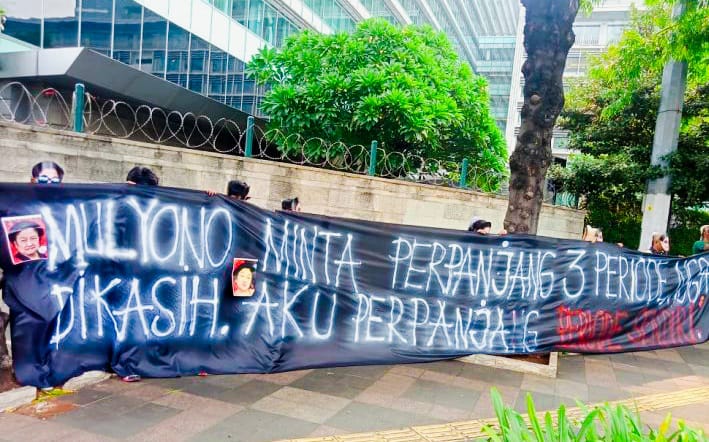 MULYONO MINTA PERPANJANG 3 PERIODE, NGGA
DIKASIH. AKU PERPANJANG PERIODE SENDIRI.